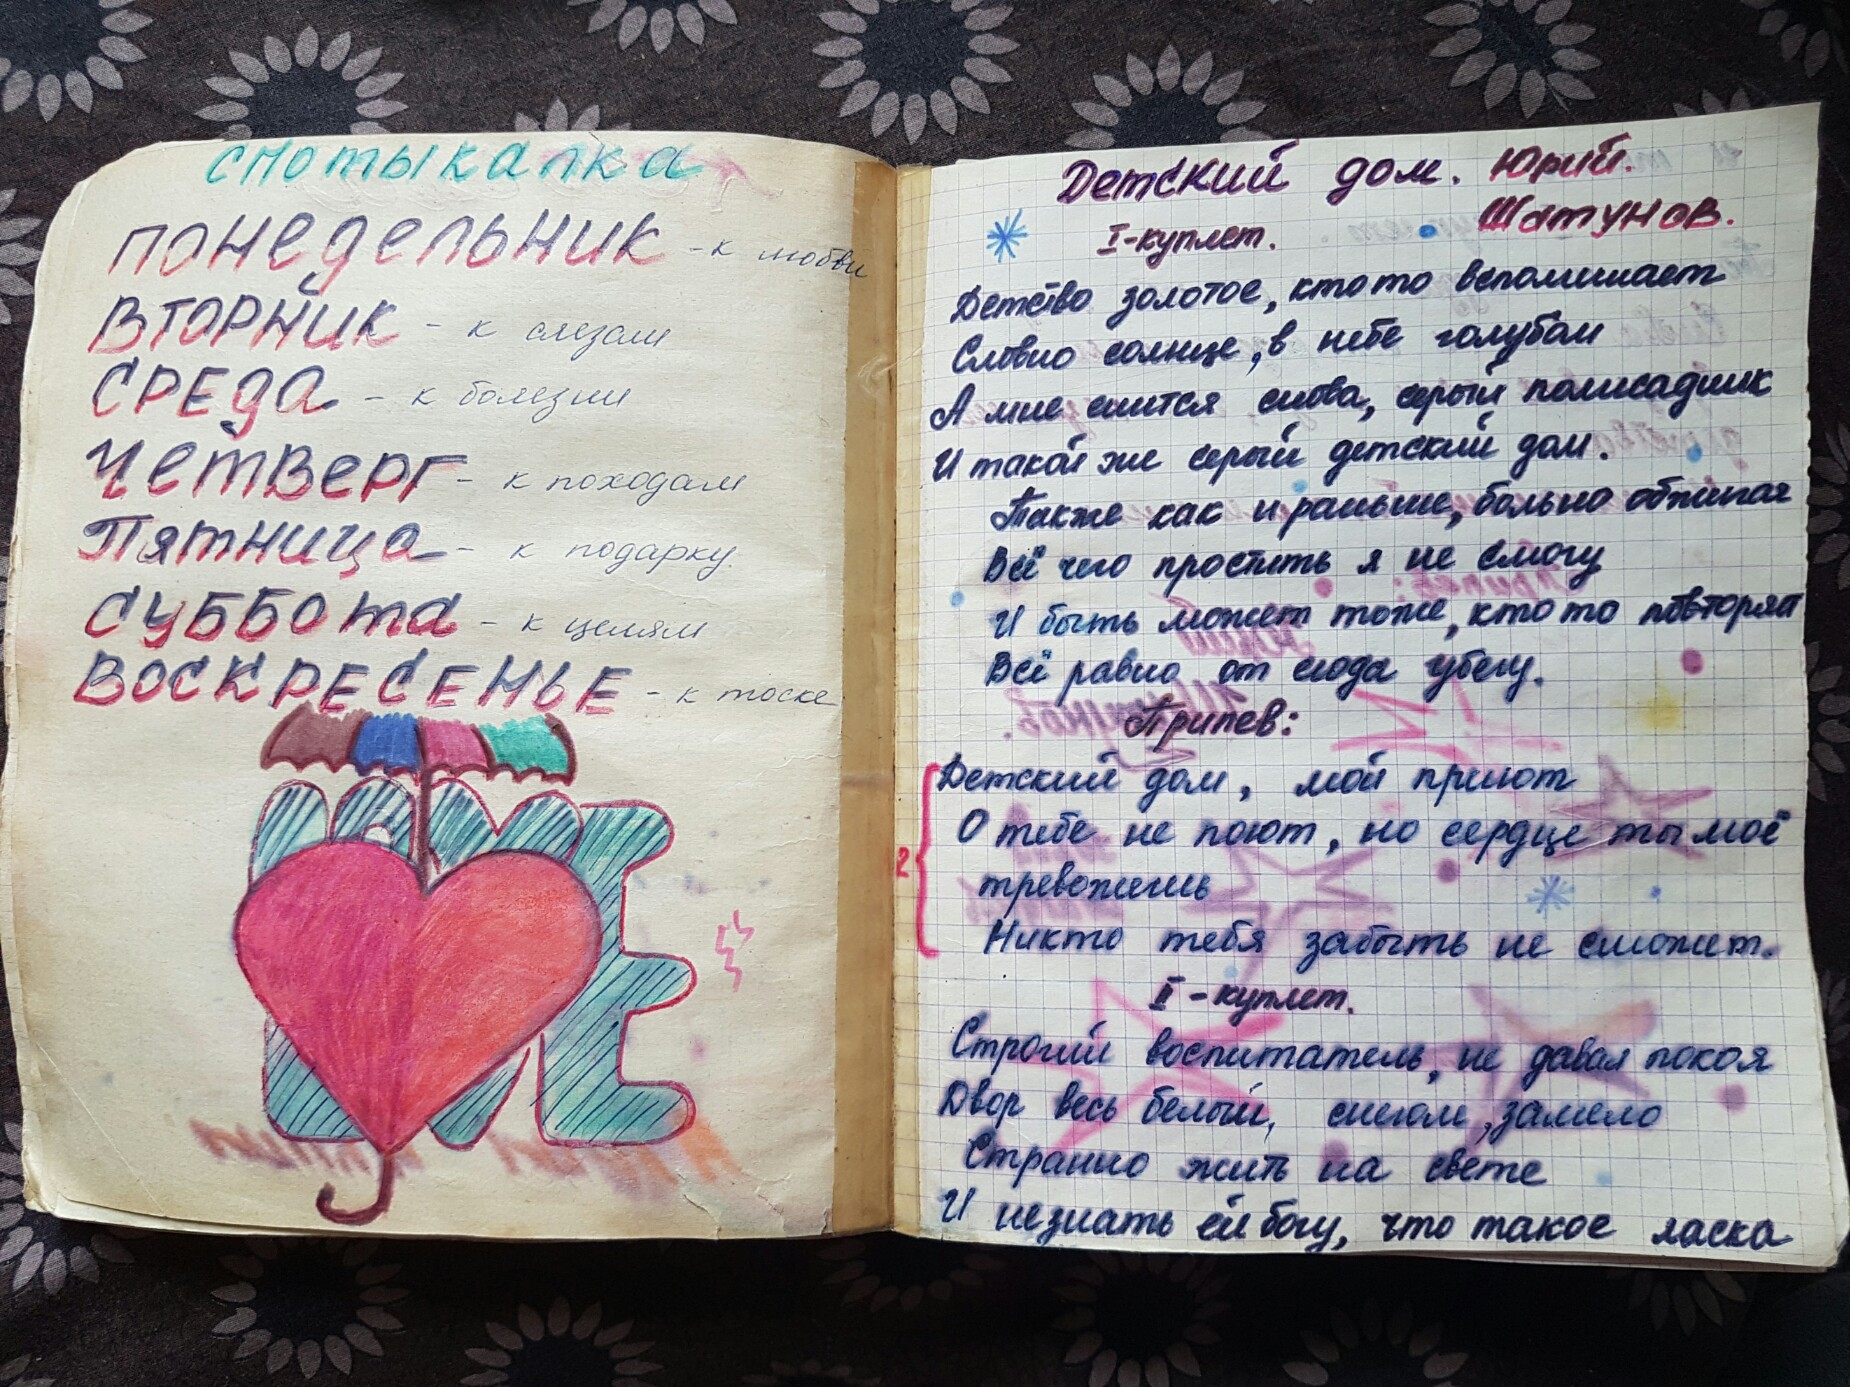 спотыкалка
ПОНЕДЕЛЬНИК - к любви
ВТОРНИК - к слезам
СРЕДА - к болезни
ЧЕТВЕРГ - к походам
Пятница - к подарку.
СУББОТА - к целям
ВОСКРЕСЕНЬЕ - к тоске
LOVE
Детский дом. Юрий.
Шатунов.
I-куплет.
Детство золотое, кто то вспоминает
Словно солнце, в небе голубом
А мне снится снова, серый полисадник
И такой же серый детский дом.
Также как и раньше, больно обжигая
Всё чего простить я не смогу
И быть может тоже, кто то повторял
Всё равно от сюда убегу.
Припев:
Детский дом, мой приют
О тебе не поют, но сердце ты моё
2
тревожишь
Никто тебя забыть не сможет.
II - куплет.
Строгий воспитатель, не давал покоя
Двор весь белый, снегом, замело
Странно жить на свете
И незнать ей богу, что такое ласка